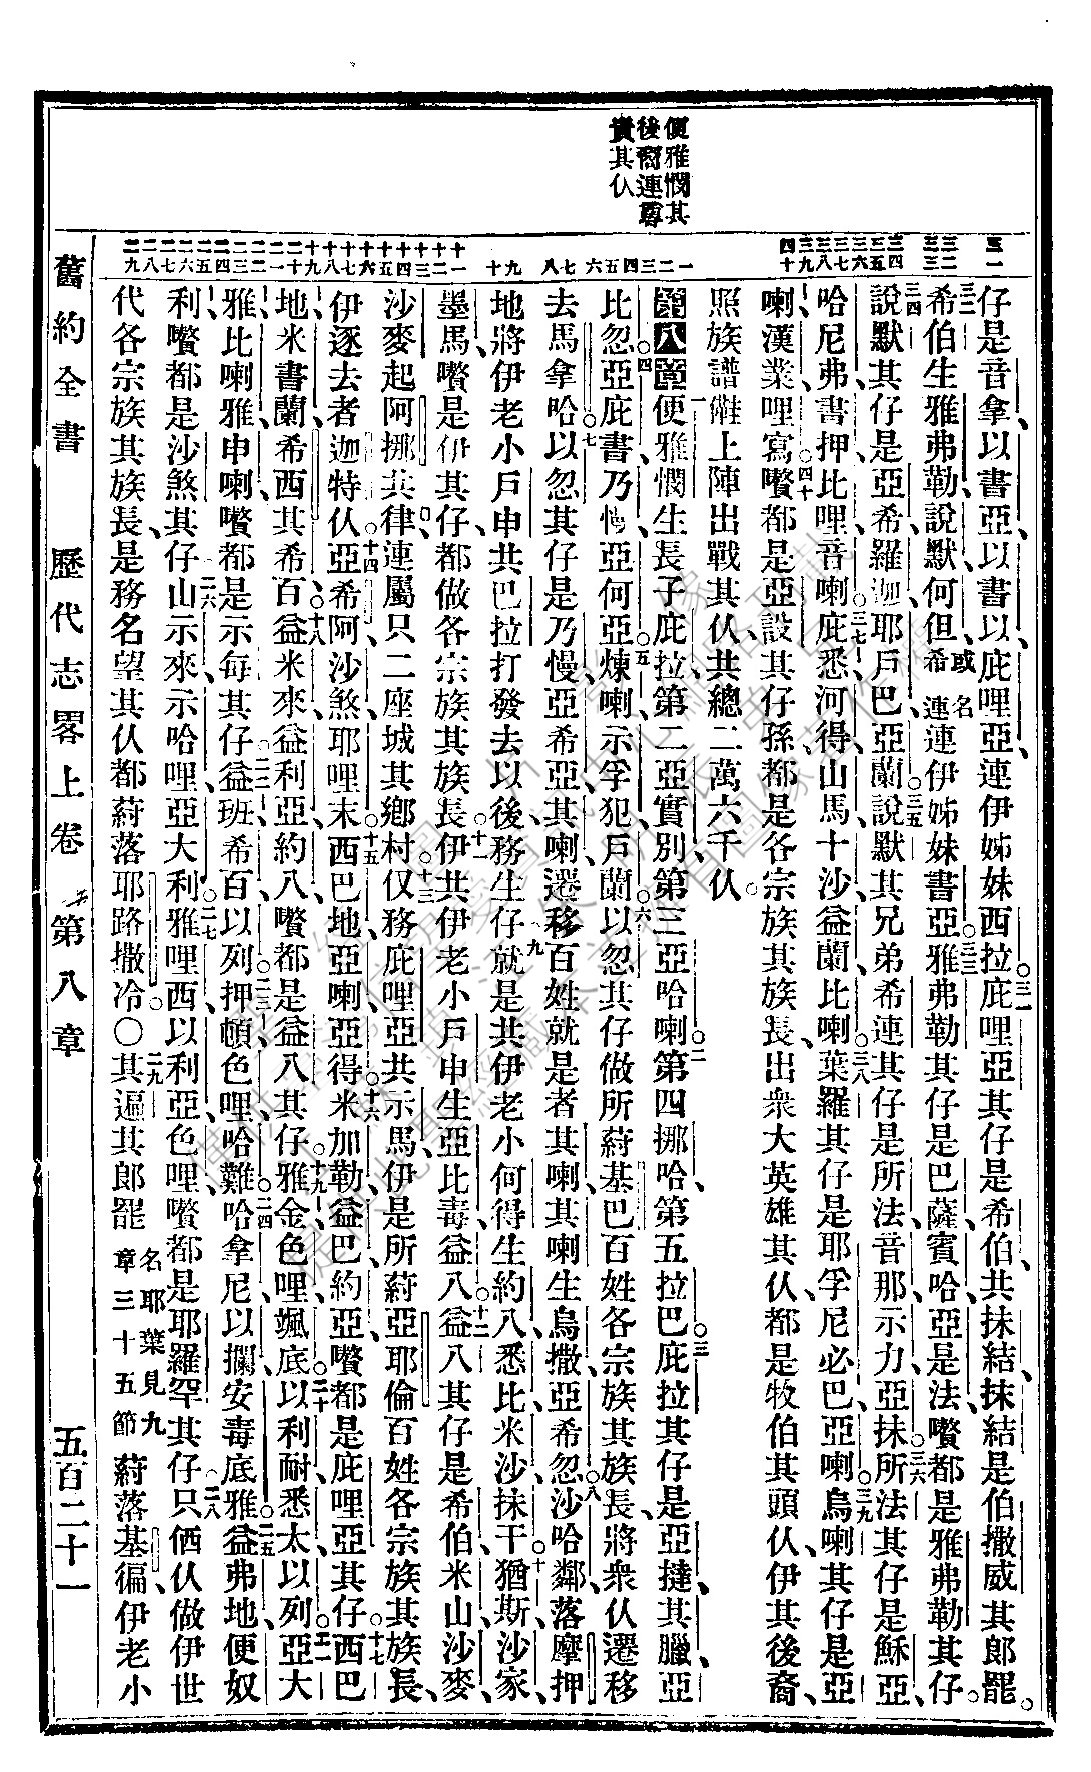 便雅憫其
後裔連尊
貴其仈
仔是音拿以書亞以書以庇哩亞連伊姊妹西拉庇哩亞其仔是希伯共抹結抹結是伯撒威其郎罷
希伯生雅弗勒說默何但或名希連連伊姊妹書亞雅弗勒其仔是巴薩賓哈亞是法嚽都是雅弗勒其仔
說默其仔是亞希羅迦耶戶巴亞蘭說默其兄弟希連其仔是所法音那示力亞抹所法其仔是穌亞
哈尼弗書押比哩音喇庇悉河得山馬十沙益蘭比喇葉羅其仔是耶孚尼必巴亞喇烏喇其仔是亞
喇漢業哩寫嚽都是亞設其仔孫都是各宗族其族長出衆大英雄其仈都是牧伯其頭仈伊其後裔
照族譜㒰上陣出戰其仈共總二萬六千仈
第八章便雅憫生長子庇拉第二亞實別第三亞哈喇第四挪哈第五拉巴庇拉其仔是亞撻其臘亞
比忽亞庇書乃慢亞何亞煉喇示孚犯戶蘭以忽其仔做所蔚基巴百姓各宗族其族長將衆仈遷移
去馬拿哈以忽其仔是乃慢亞希亞其喇遷移百姓就是者其喇其喇生烏撒亞希忽沙哈鄰落摩押
地將伊老小戶申共巴拉打發去以後務生仔就是共伊老小何得生約八悉比米沙抹干猶斯沙家
墨馬嚽是伊其仔都做各宗族其族長伊共伊老小戶申生亞比毒益八益八其仔是希伯米山沙麥
沙麥起阿挪共律連屬只二座城其鄉村仅務庇哩亞共示馬伊是所蔚亞耶倫百姓各宗族其族長
伊逐去者迦特仈亞希阿沙煞耶哩末西巴地亞喇亞得米加勒益巴約亞嚽都是庇哩亞其仔西巴
地米書蘭希西其希百益米來益利亞約八嚽都是益八其仔雅金色哩颯底以利耐悉太以列亞大
雅比喇雅申喇嚽都是示每其仔益班希百以列押頓色哩哈難哈拿尼以攔安毒底雅益弗地便奴
利嚽都是沙煞其仔山示來示哈哩亞大利雅哩西以利亞色哩嚽都是耶羅罕其仔只仈仈做伊世
代各宗族其族長是務名望其仈都蔚落耶路撒冷〇其遍其郎罷名耶葉見九章三十五節蔚落基徧伊老小
舊約全書　歷代志畧上卷　第八章　五百二十一